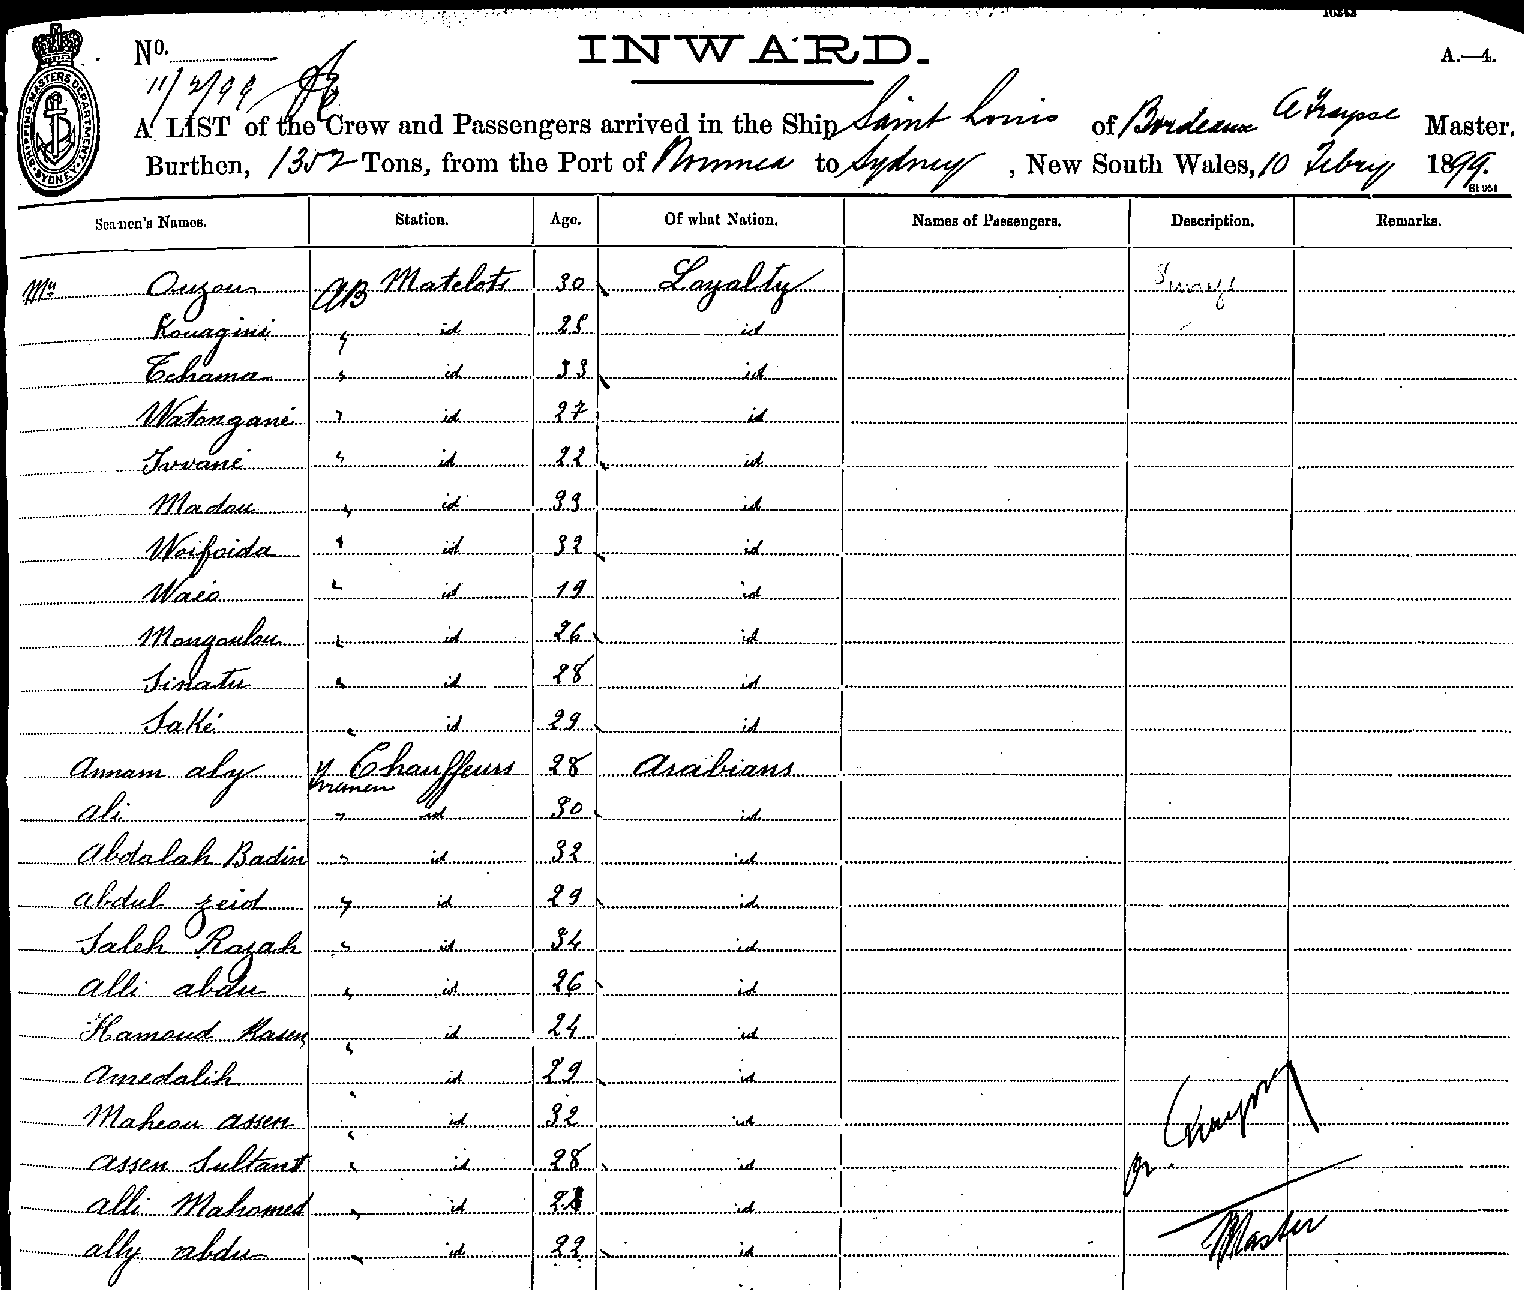 INWARD.
No.
A.—4.
11/2/99
A LIST of the Crew and Passengers arrived in the Ship Saint Louis of Bordeaux A Fraysse Master,
Burthen, 1352 Tons, from the Port of Noumea to Sydney, New South Wales, 10 Febry 1899.
Seamen's Names. Station. Age. Of what Nation. Names of Passengers. Description. Remarks.
Ouzou AB Matelots 30 Loyalty
Kouagini " id 25 id
Tchama " id 33 id
Watongané " id 27 id
Ivvané " id 22 id
Madou " id 33 id
Woifoida " id 32 id
Waio " id 19 id
Mongoulou " id 26 id
Sinatu " id 28 id
Saké " id 29 id
Annam aly " Chauffeurs 28 Arabians
firemen
ali " id 30 id
Abdalah Badin " id 32 id
abdul zeid " id 29 id
Saleh Razah " id 34 id
alli abdu " id 26 id
Hamoud Kasen " id 24 id
Amedalih " id 29 id
Maheou assen " id 32 id
assen Sultant " id 28 id
alli Mahomed " id id
ally abdu " id 22 id
Master